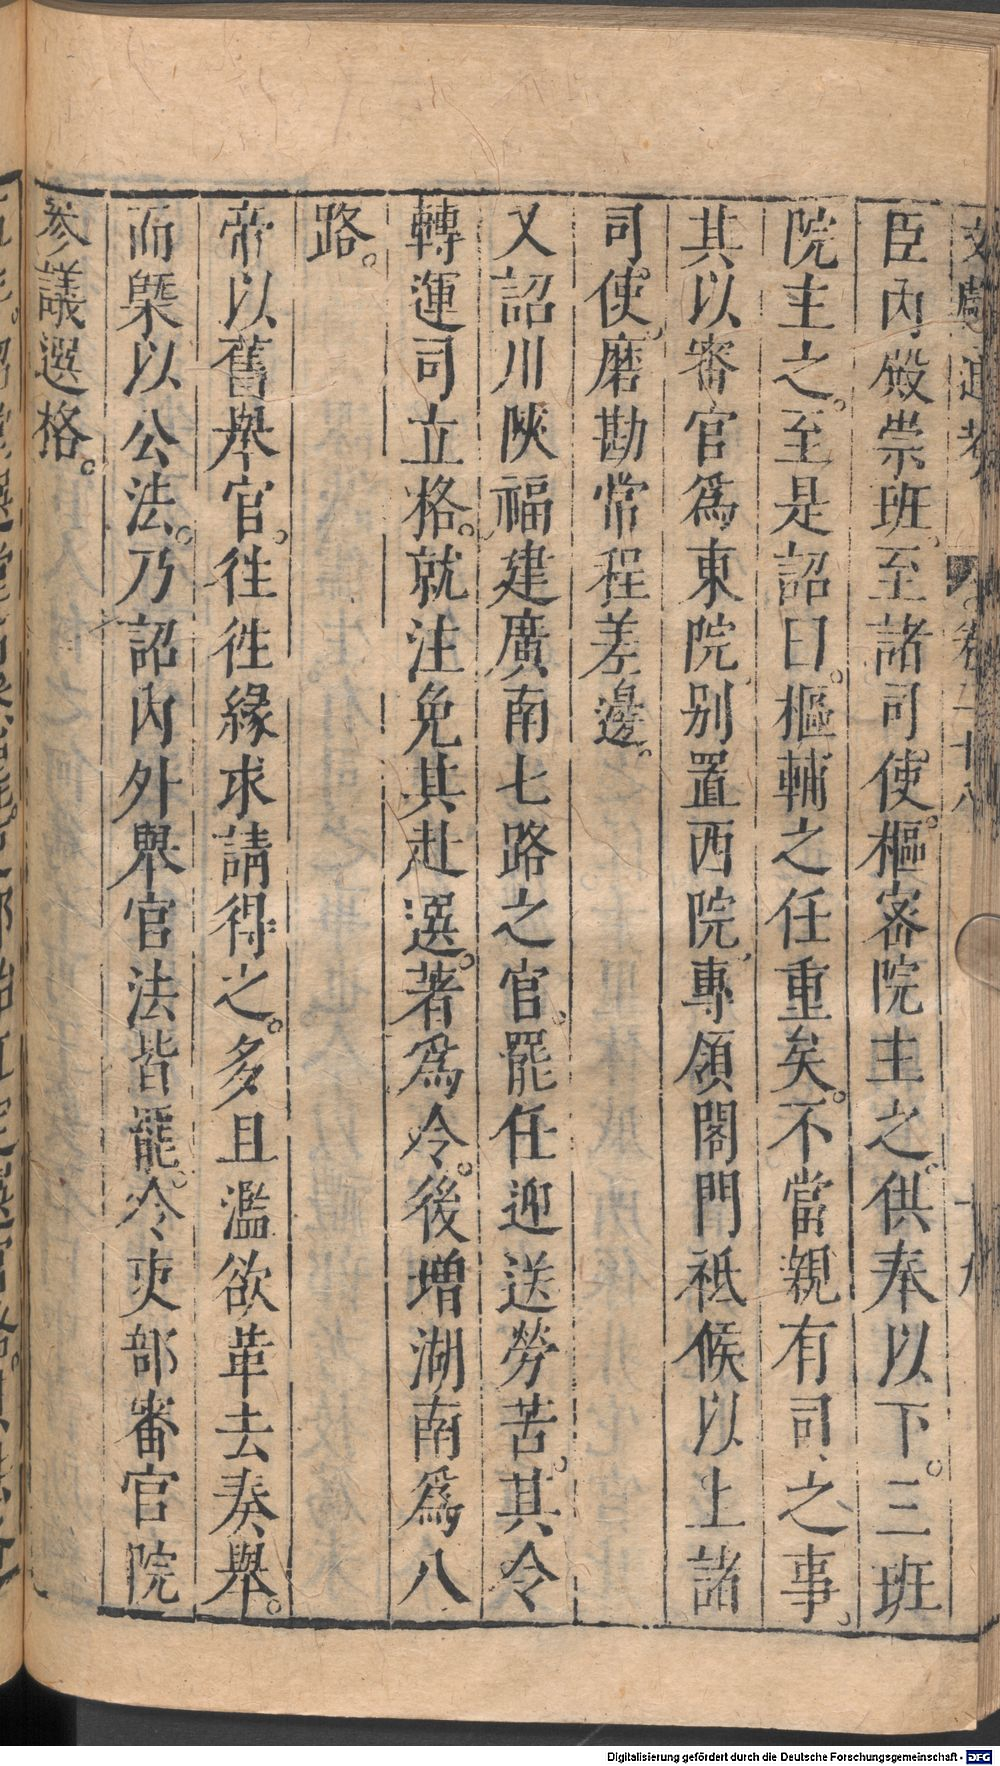 文獻通考 卷三十八 十九
臣內殿崇班至諸司使樞密院主之供奉以下三班
院主之至是詔曰樞輔之任重矣不當親有司之事
其以審官爲東院別置西院專領閤門祗候以上諸
司使磨勘常程差邊
又詔川陝福建廣南七路之官罷任迎送勞苦其令
轉運司立格就注免其赴選著爲令後增湖南爲八
路
帝以舊舉官徃徃緣求請得之多且濫欲革去奏舉
而槩以公法乃詔內外舉官法皆罷令吏部審官院
參議選格
Digitalisierung gefördert durch die Deutsche Forschungsgemeinschaft - DFG